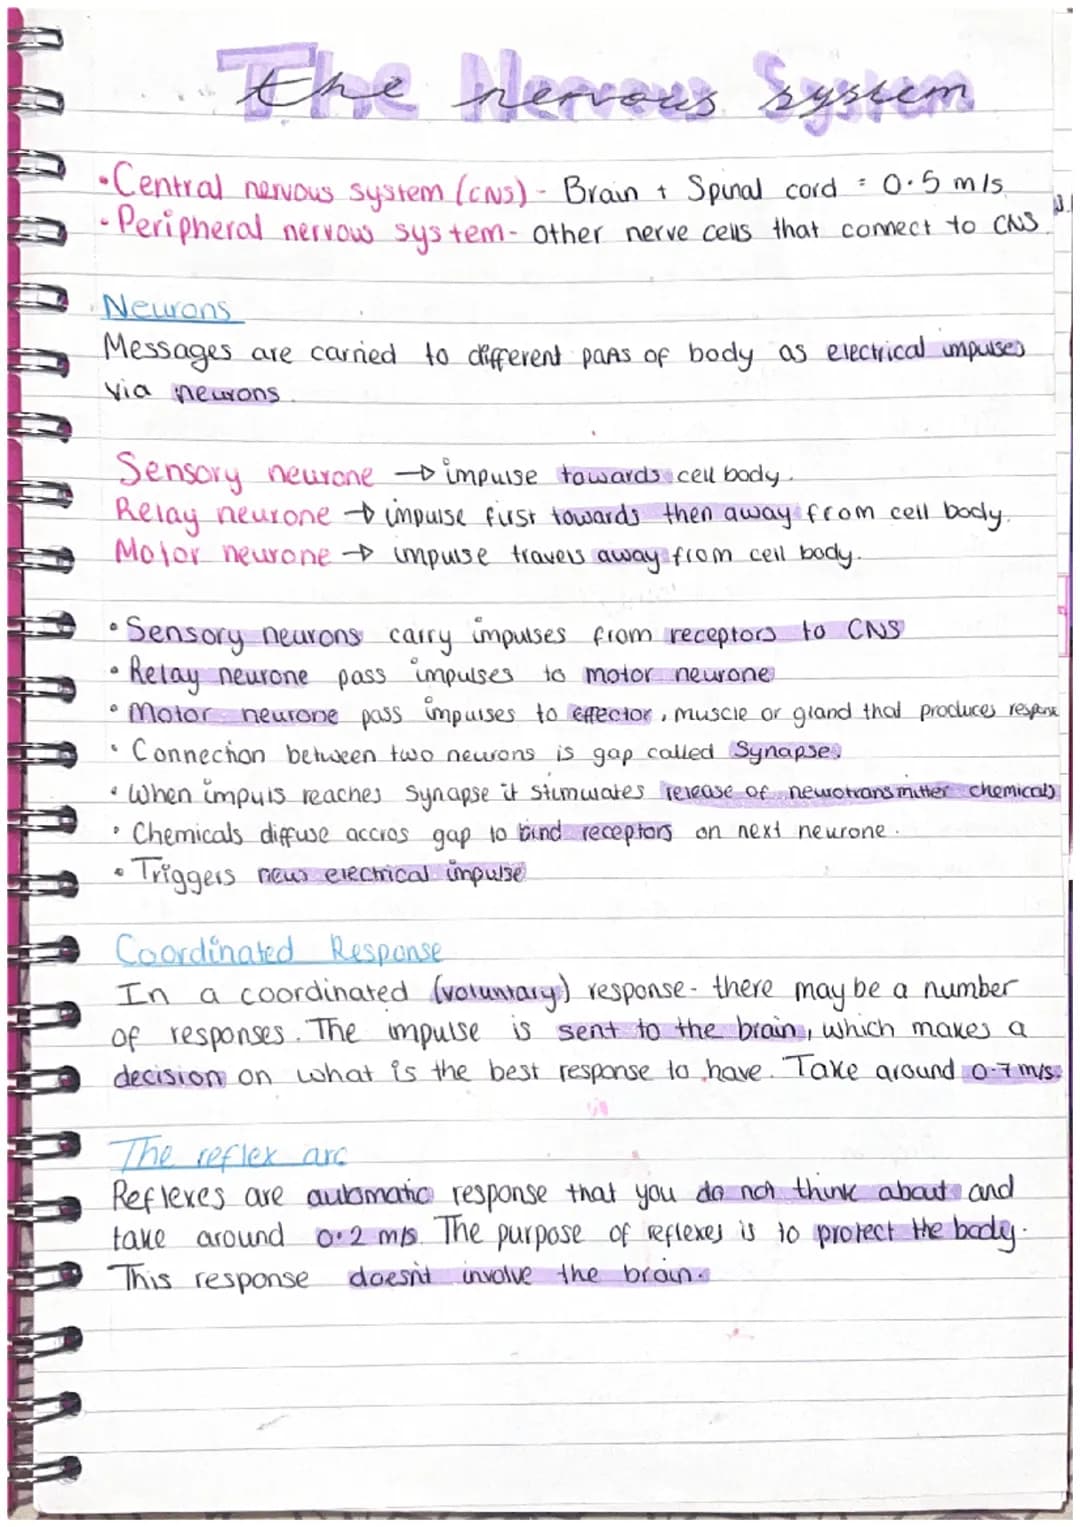 The Nervous System
the nervous system
• Central nervous system (CNS) - Brain + Spinal cord = 0.5 m/s.
• Peripheral nervous system - other nerve cells that connect to CNS.
Neurons
Messages are carried to different parts of body as electrical impulses
via neurons.
Sensory neurone → impulse towards cell body.
Relay neurone → impulse first towards then away from cell body.
Motor neurone → impulse travels away from cell body.
• Sensory neurons carry impulses from receptors to CNS
• Relay neurone pass impulses to motor neurone
• Motor neurone pass impulses to effector, muscle or gland that produces response
• Connection between two neurons is gap called Synapse.
• When impuls reaches synapse it stimulates release of neurotransmitter chemicals
• Chemicals diffuse accros gap to bind receptors on next neurone.
• Triggers new electrical impulse
Coordinated Response
In a coordinated (voluntary) response - there may be a number
of responses. The impulse is sent to the brain, which makes a
decision on what is the best response to have. Take around 0.7 m/s.
The reflex arc
Reflexes are automatic response that you do not think about and
take around 0.2 m/s. The purpose of reflexes is to protect the body.
This response doesn't involve the brain.